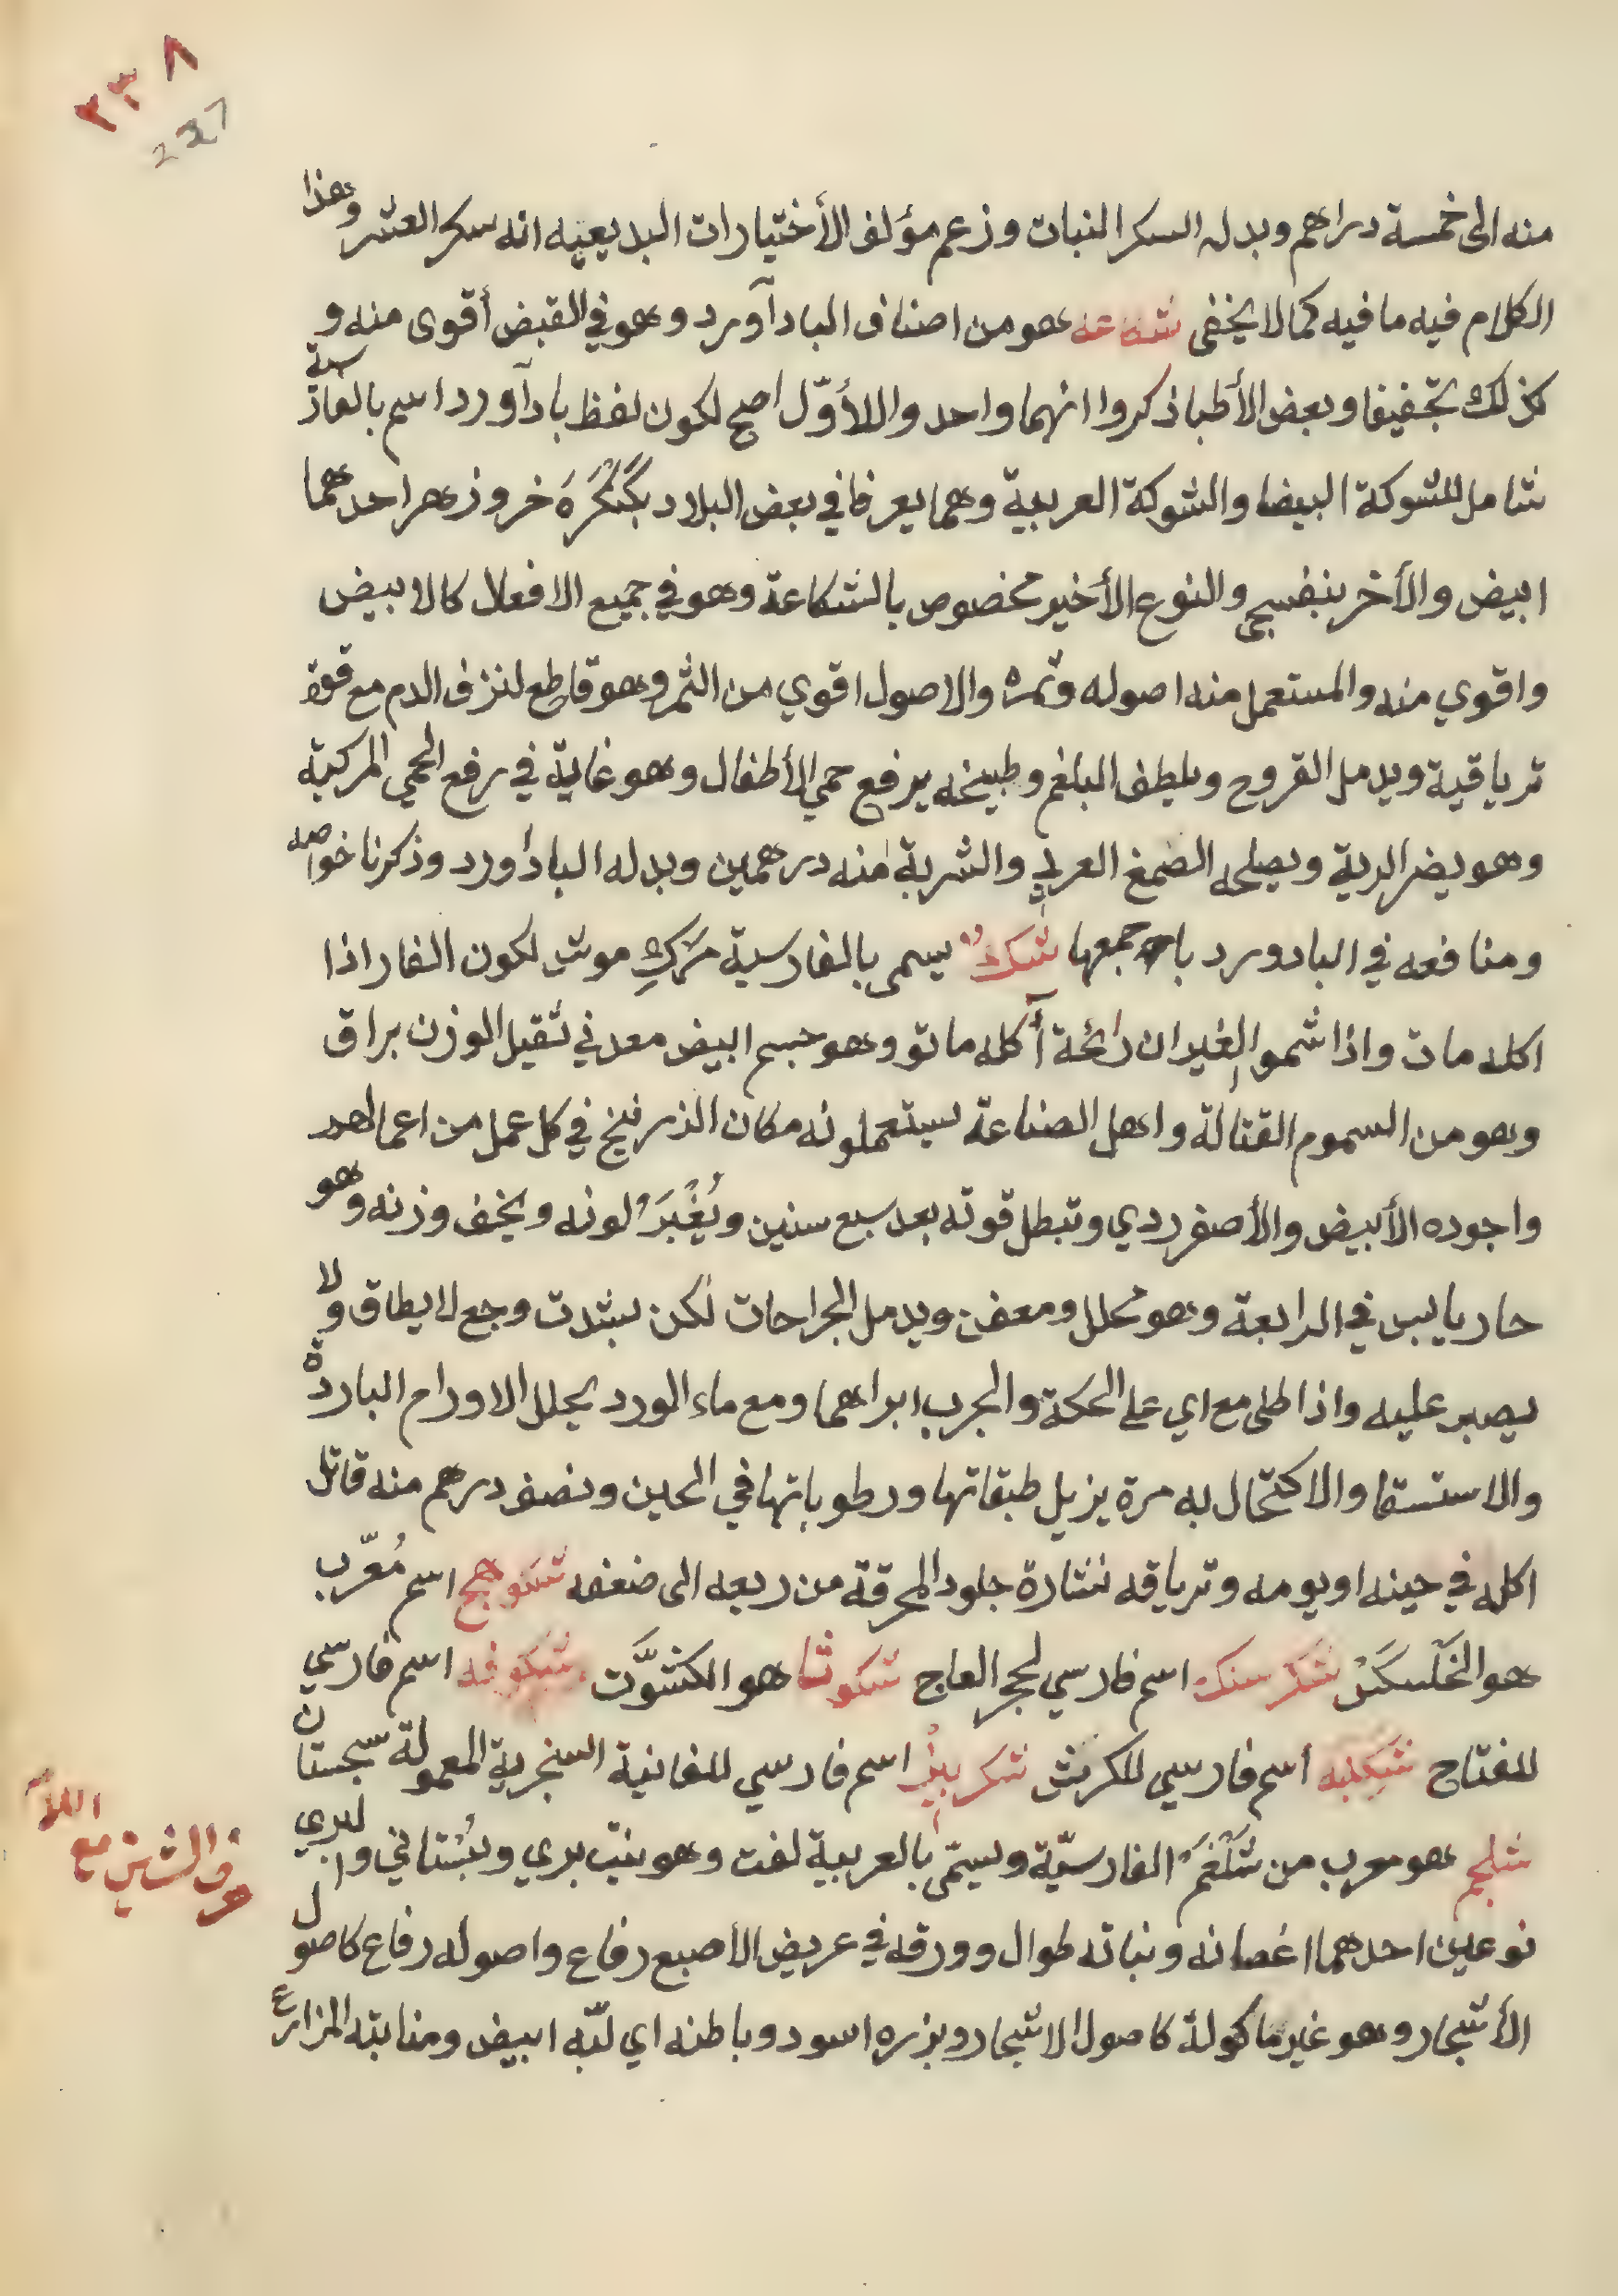 ٢٣٨
237
منه الى خمسة دراهم وبدله السكر النبات وزعم مؤلف الأختيارات البديعيه انه سكر العشر وهذا
الكلام فيه ما فيه كما لا يخفى شكاعه هو من اصناف الباد آورد وهو في القبض أقوى منه و
كذلك تجفيفا وبعض الأطبا ذكروا انهما واحد واللأوّل اصح لكون لفظ باد آورد اسم بالفارسية
شامل للشوكة البيضا والشوكة العربية وهما يعرفا في بعض البلاد بكَنْكَرَه خر وزهر احدهما
ابيض والأخر بنفسجى والنوع الأخير مخصوص بالشكاعة وهو في جميع الافعال كالابيض
واقوي منه والمستعمل منه اصوله وثمره والاصول اقوي من الثمر وهو قاطع لنزف الدم مع قوة
ترياقية ويدمل القروح ويلطف البلغم وطبيخه يرفع حمي الأطفال وهو غاية في رفع الحمي المركبة
وهو يضر الرية ويصلحه الضمغ العربي والشربة منه درهمين وبدله الباد أورد وذكرنا خواصه
ومنافعه في البادورد باجمعها شك يسمى بالفارسية مَرَكِ موش لكون الفار اذا
اكله مات واذا شموا الفيران رائحة آكله ماتو وهو جسم ابيض معدني ثقيل الوزن براق
وهو من السموم القتالة واهل الصناعة يستعملونه مكان الزرنيخ في كل عمل من اعمالهم
واجوده الأبيض والأصفر ردي وتبطل قوته بعد سبع سنين ويُغْبَرُ لونه ويخف وزنه وهو
حار يابس في الرابعة وهو محلل ومعفن ويدمل الجراحات لكن بشدت وجع لا يطاق ولا
يصبر عليه واذا طلى مع اي على الحكة والجرب ابراهما ومع ماء الورد يحلل الاورام الباردة
والاستسقا والاكتحال به مرة يزيل طبقاتها ورطوباتها في الحين ونصف درهم منه قاتل
اكله في حينه او يومه وترياقه نشارة جلود المحرقة من ربعه الى ضعفه شكوهج اسم مُعرّب
هو الخَسَكْ شكر سنك اسم فارسي لحجر العاج شكوثا هو الكشوَّت شكوفه اسم فارسي
للفتاح شكنبه اسم فارسي للكرش شكر بيز اسم فارسي للفانية السنجرية المعمولة سجستان
شلجم هو معرب من شَلْغَمَ الفارسيّة ويسمّى بالعربية لفت وهو ينبت بري وبُستاني والبري
نوعين احدهما اغصانه ونباته طوال وورقه في عريض الأصبع رفاع واصوله رفاع كاصول
الأشجار وهو غير ماكولة كاصول الاشجار وبزره اسود وباطنه اي لبّه ابيض ومنابته المزارع
حرف الشين مع اللام